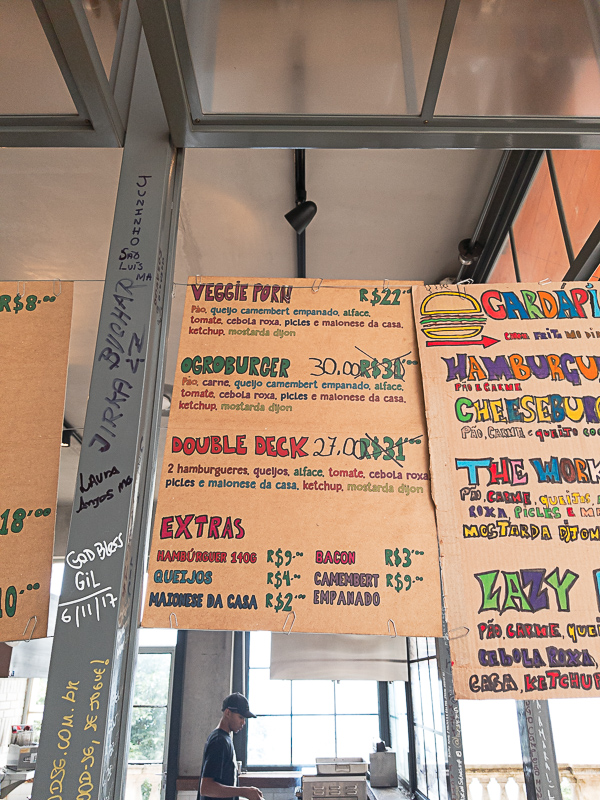 R$8,00
18,00
10,00
ZUNHINCHY
SÃO
LUÍS
MA
JIRKA BYCHAR
CZ
LAURA
Anjos MG
GOD BLESS
GIL
6/11/17
VEGGIE PORN R$22,00
Pão, queijo camembert empanado, alface,
tomate, cebola roxa, picles e maionese da casa,
ketchup, mostarda dijon
OGROBURGER 30.00 R$34,00
Pão, carne, queijo camembert empanado, alface,
tomate, cebola roxa, picles e maionese da casa,
ketchup, mostarda dijon
DOUBLE DECK 27.00 R$31,00
2 hamburgueres, queijos, alface, tomate, cebola roxa
picles e maionese da casa, ketchup, mostarda dijon
EXTRAS
HAMBÚRGUER 140G R$9,00 BACON R$3,00
QUEIJOS R$4,00 CAMEMBERT R$9,00
MAIONESE DA CASA R$2,00 EMPANADO
CARDÁPI
CARNE FEITA NO DI
HAMBÚRGU
PÃO E CARNE
CHEESEBUR
PÃO, CARNE E QUEIJO
THE WORK
PÃO, CARNE, QUEIJOS,
ROXA, PICLES E M
MOSTARDA DIJON
LAZY
PÃO, CARNE, QUEI
CEBOLA ROXA,
CASA, KETCHUP
.COM.BR
SE JOGUE!